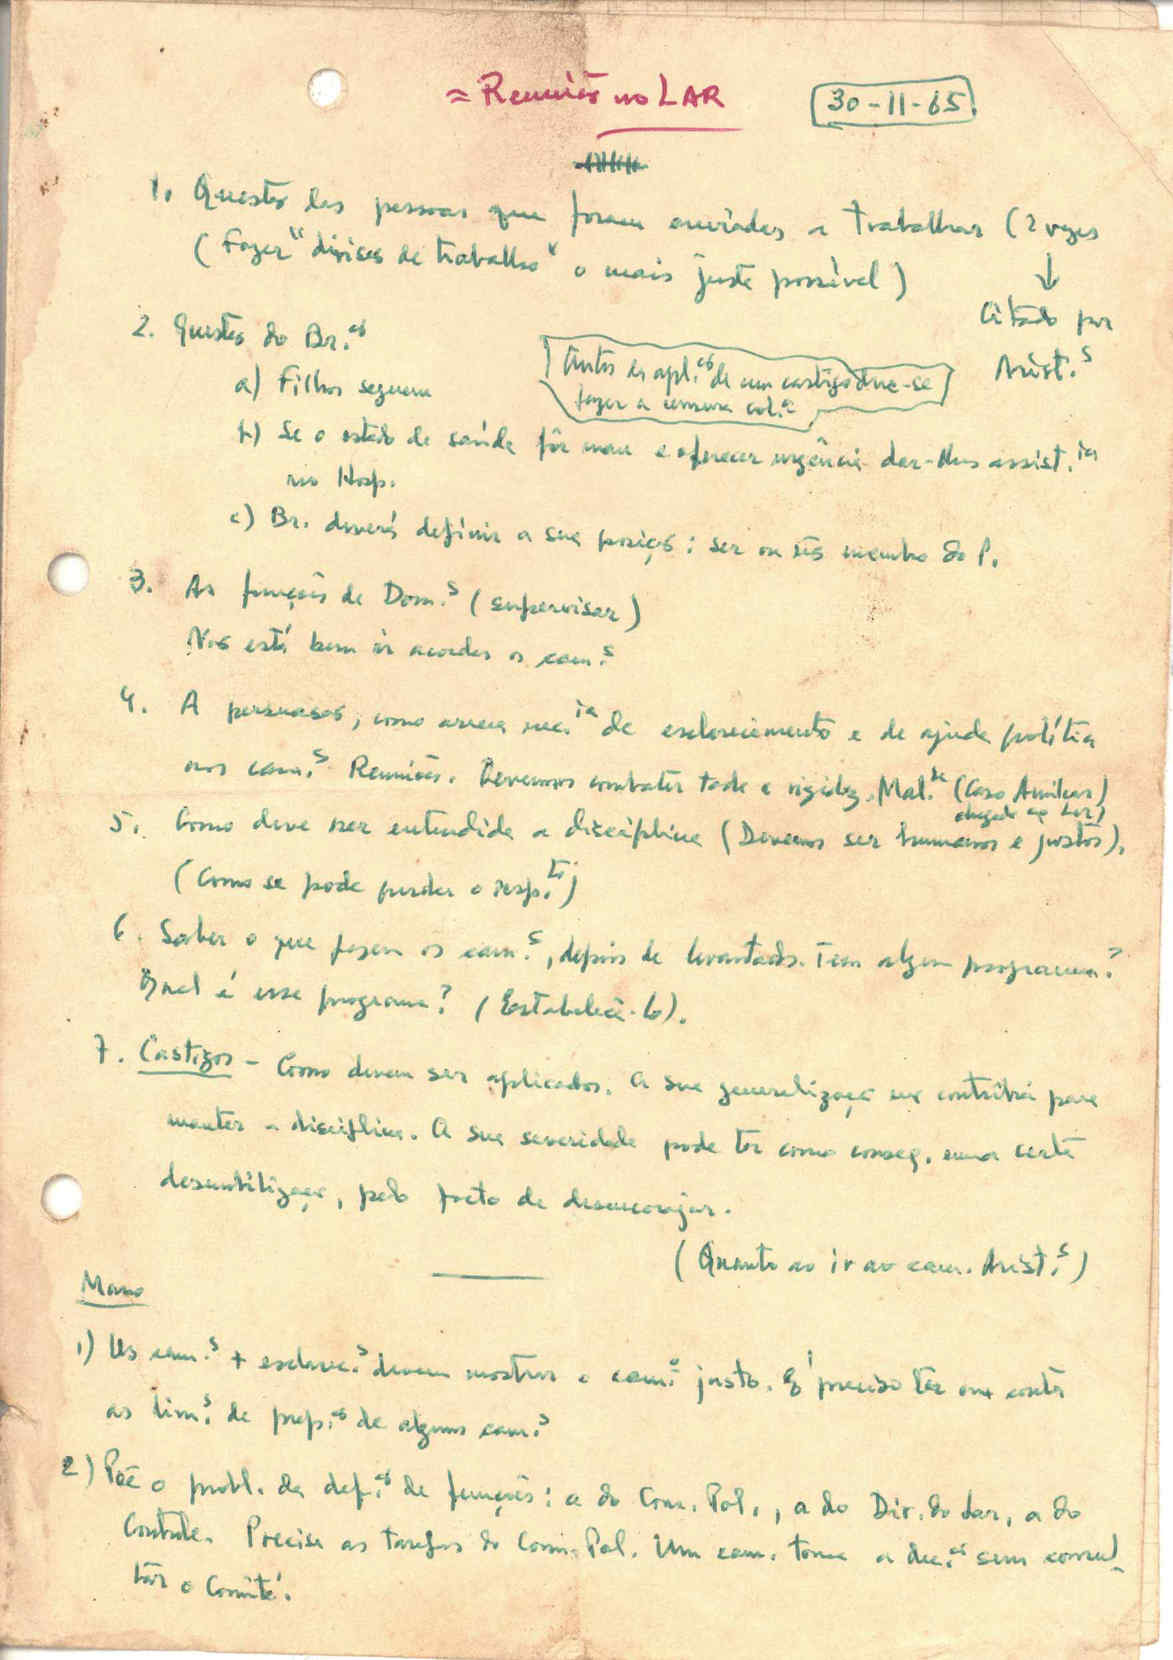 = Reunião no LAR
30-11-65
1. Questão das pessoas que foram enviadas a trabalhar (2 vezes
(Fazer "divisão de trabalho" o mais justo possível)
↓
Citado por
Arist.s
2. Questão do Br.ão
a) Filhos seguem
Antes da apl.ão de um castigo deve-se
fazer a censura col.a
b) Se o estado de saúde fôr mau e oferecer urgência dar-lhes assist.ia
no Hosp.
c) Br. deverá definir a sua posição: ser ou não membro do P.
3. As funções de Dom.s (supervisar)
Não está bem ir acordar os cam.s
4. A persuasão, como arma nec.ia de esclarecimento e de ajuda política
aos cam.s Reuniões. Devemos combater toda a rigidez. Mal.de (Caso Amílcar)
chegada ao Lar)
5. Como deve ser entendida a disciplina (Devemos ser humanos e justos).
(Como se pode perder o resp.to)
6. Saber o que fazem os cam.s, depois de levantados. Têm algum programa?
Qual é esse programa? (Estabelecê-lo).
7. Castigos - Como devem ser aplicados. A sua generalização não contribui para
manter a disciplina. A sua severidade pode ter como conseq. uma certa
desmobilização, pelo facto de desencorajar.
(Quanto ao ir ao cam. Arist.s)
Mano
1) Us cam.s + esclarec.s devem mostrar o cam.o justo. É preciso ter em conta
as lim.s de prep.ão de alguns cam.s
2) Põe o probl. da def.ão de funções: a do Com. Pol., a do Dir. do Lar, a do
Controle. Precisa as tarefas do Com. Pol. Um cam. toma a dec.ão sem consul-
tar o Comité.